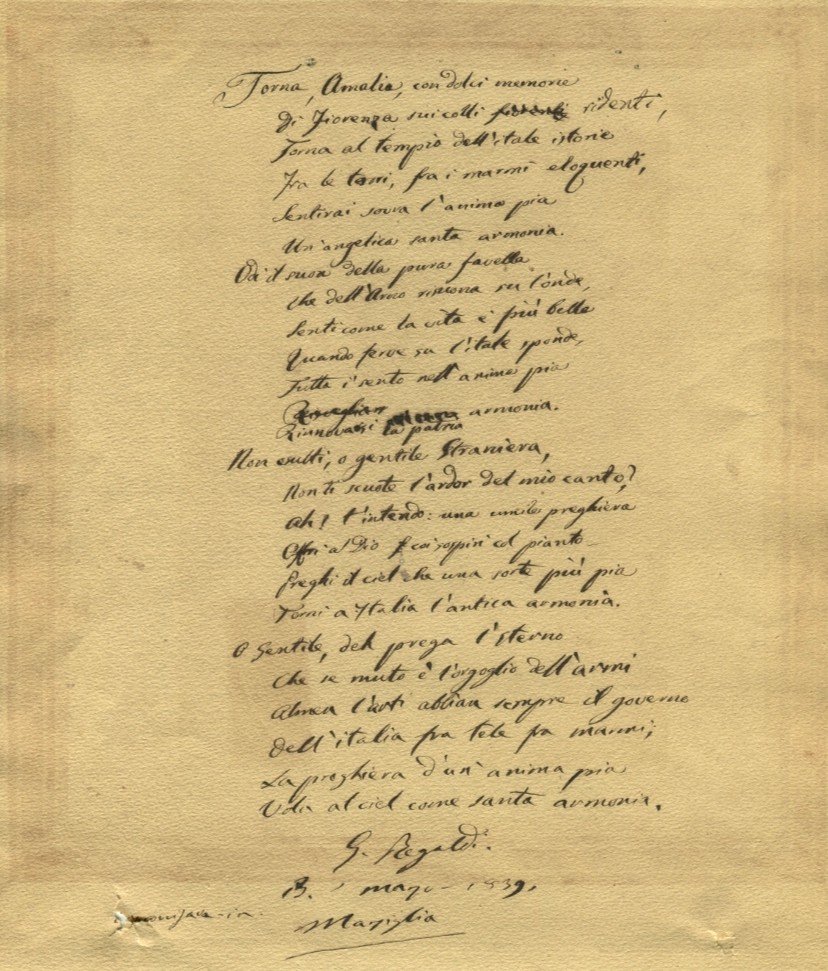 Torna, Amalia, con dolci memorie
Di Fiorenza sui colli ridenti,
Torna al tempio dell'itale istorie
Fra le torri, fra i marmi eloquenti,
Sentirai sovra l'anima pia
Un'angelica santa armonia.
Odi il suon della pura favella
Che dell'Arno risuona su l'onde,
Senti come la vita è più bella
Quando ferve su l'itale sponde,
Tutta i' sento nell'anima pia
Rinnovarsi la patria armonia.
Non esulti, o gentile Straniera,
Non ti scuote l'ardor del mio canto?
Ah! t'intendo: una umile preghiera
Offri al Dio coi sospiri ed pianto
Preghi il ciel che una sorte più pia
Torni a Italia l'antica armonia.
O Gentile, deh prega l'Eterno
Che se muto è l'orgoglio dell'armi
Almen l'arti abbian sempre il governo
Dell'italia fra tele fra marmi;
La preghiera d'un'anima pia
Vola al ciel come santa armonia.
G. Regaldi.
1839.
Marsiglia